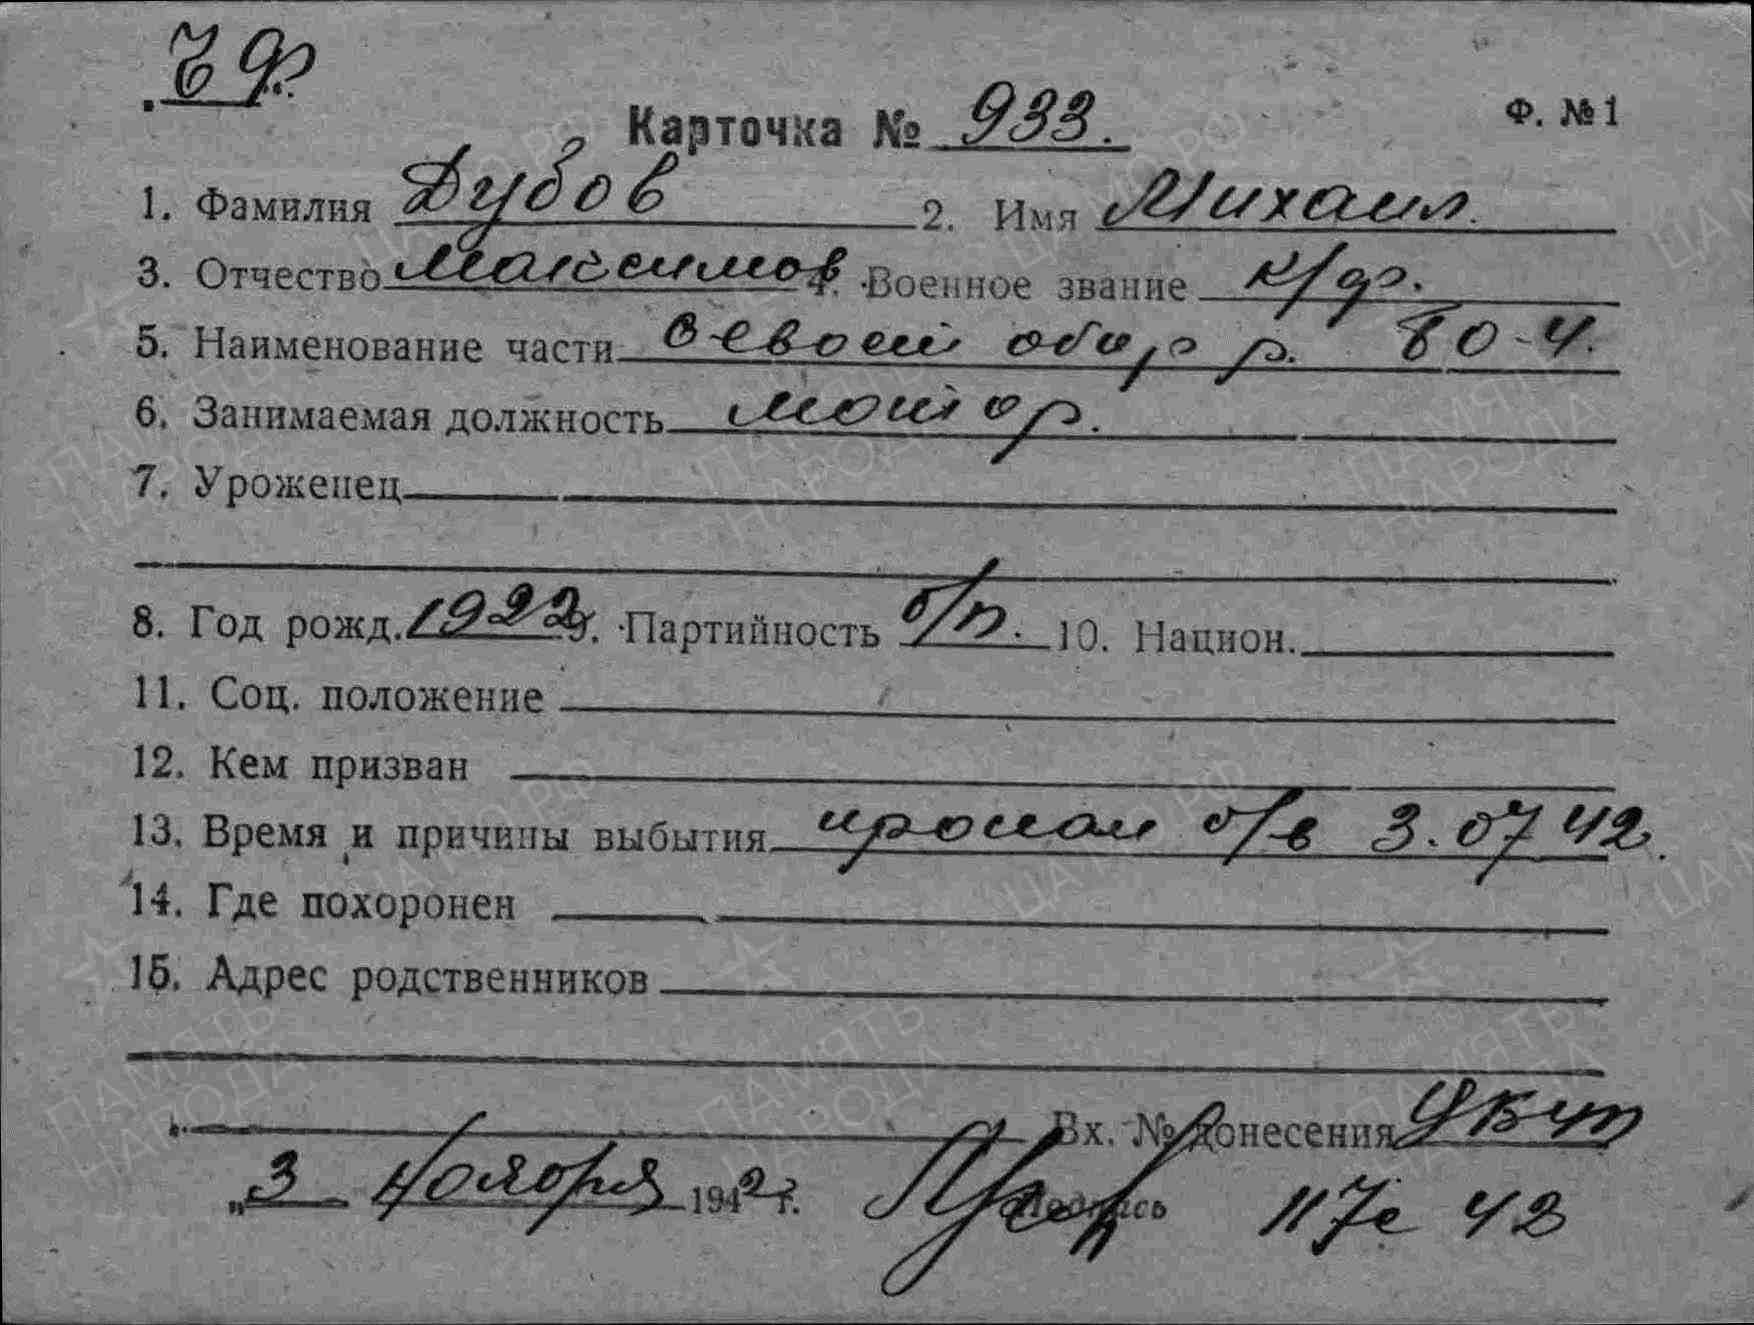 ЧФ.
Карточка № 933. Ф. №1
1. Фамилия Дубов 2. Имя Михаил.
3. Отчество Максимов 4. Военное звание к/ф.
5. Наименование части Севаст обор р. ВО-Ч.
6. Занимаемая должность мотор.
7. Уроженец
8. Год рожд. 1922 г. Партийность б/п. 10. Национ.
11. Соц. положение
12. Кем призван
13. Время и причины выбытия пропал б/в 3.07 42.
14. Где похоронен
15. Адрес родственников
Вх. № донесения
„3 ноября 1942 г. Подпись 117с 42
ПАМЯТЬ НАРОДА
ЦАМО РФ